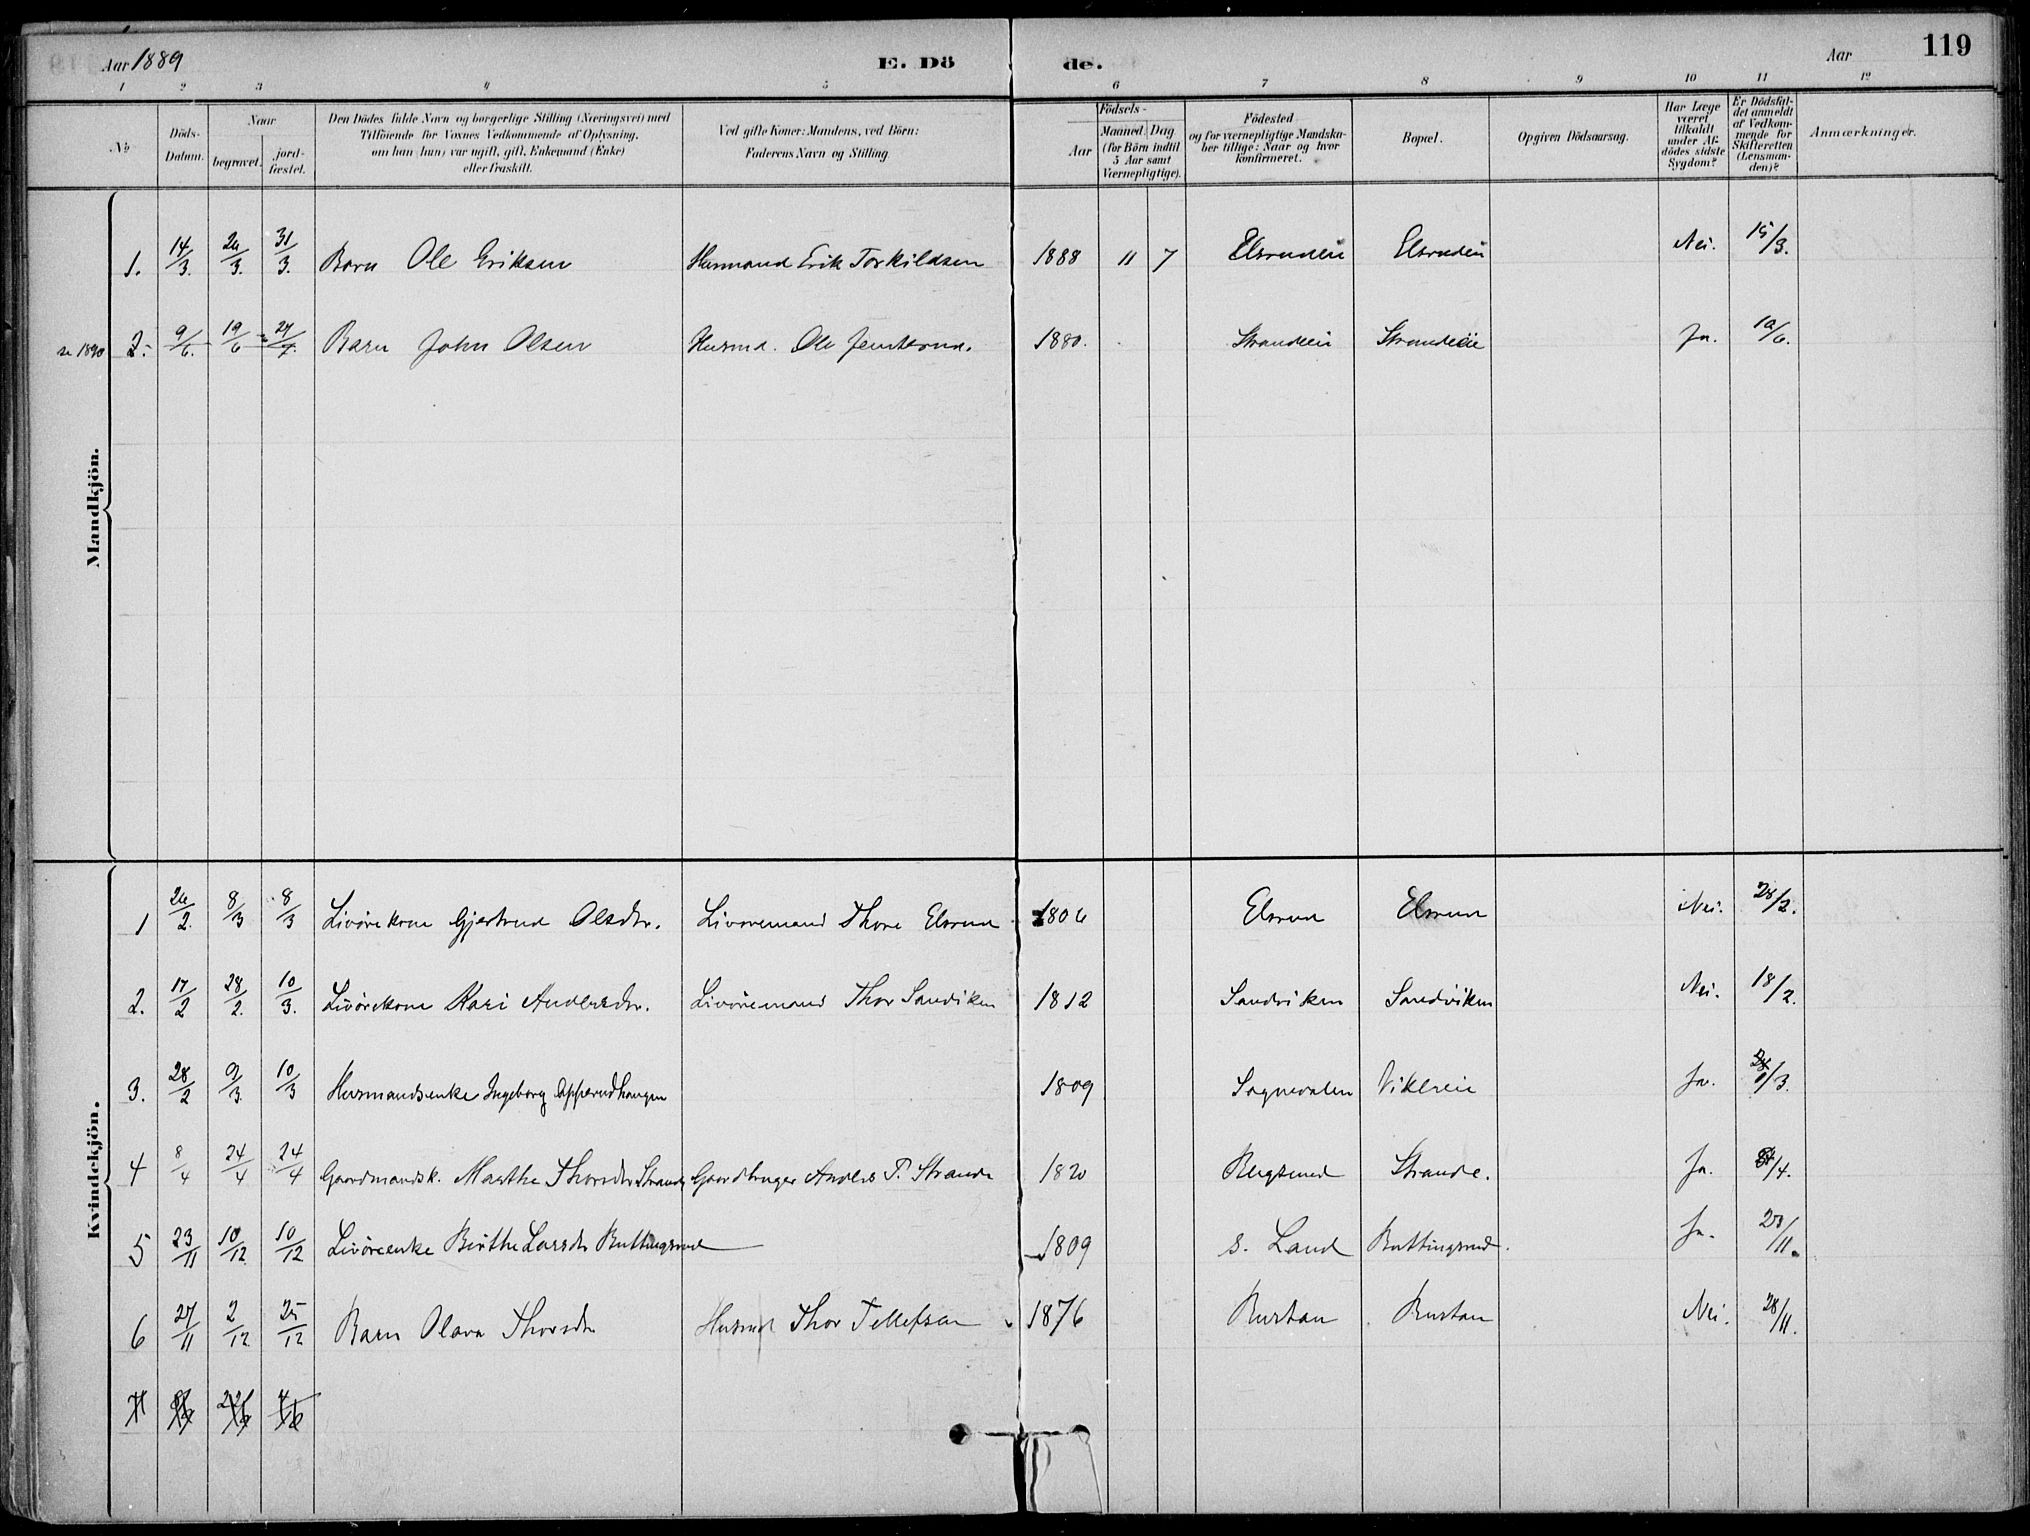 Aar 1889 E. Dö de. Aar 119
1 2 3 4 5 6 7 8 9 10 11 12
№ Döds-Datum. Naar begravet. jord-fæstet. Den Dödes fulde Navn og borgerlige Stilling (Næringsvei) med Tilföiende for Voxnes Vedkommende af Oplysning, om han (hun) var ugift, gift, Enkemand (Enke) eller fraskilt. Ved gifte Koner: Mandens, ved Börn: Faderens Navn og Stilling. Födsels- Aar Maaned. Dag (for Börn indtil 5 Aar samt Værnepligtige). Födested og for værnepligtige Mandskaber tillige: Naar og hvor konfirmeret. Bopæl. Opgiven Dödsaarsag. Har Læge været tilkaldt under Afdödes sidste Sygdom? Er Dödsfaldet anmeldt af Vedkommende for Skifteretten (Lensmanden)? Anmærkninger.
Mandkjön.
1. 14/3. 26/3. 31/3. Barn Ole Eriksen Husmand Erik Torkildsen 1888 11 7 Elsrudeie Elsrudeie Nei. 15/3.
se 1890 2. 9/6. 19/6 27/7. Barn John Olsen Husmd. Ole 1880. Strandeie Strandeeie Ja. 10/6.
Kvindekjön.
1 26/2. 8/3 8/3 Livörekone Gjertrud Olsdtr. Livöremand Thore Elsrud 1806 Elsrud Elsrud Nei. 28/2.
2. 17/2 28/2. 10/3. Livörekone Kari Andersdtr. Livöremand Thor Sandviken 1812 Sandviken Sandviken Nei. 18/2.
3. 28/2 9/3. 10/3 Husmandsenke Ingeborg Opperudhaugen 1809 Sognedalen Viklseie Ja. /3.
4 8/4 24/4 24/4 Gaardmandsk. Marthe Thorsdtr Strande Gaardbruger Anders T. Strande 1820 Bergsund Strande. Ja. /4.
5 23/11 10/12. 10/12 Livöreenke Birthe Larsdtr Buttingsrud 1809 S. Land Buttingsrud. Ja. /11.
6 27/11 2/12. 25/12 Barn Olava Thorsdtr Husmd Thor Tellefsen 1876 Burtan Burtan Nei. 28/11.